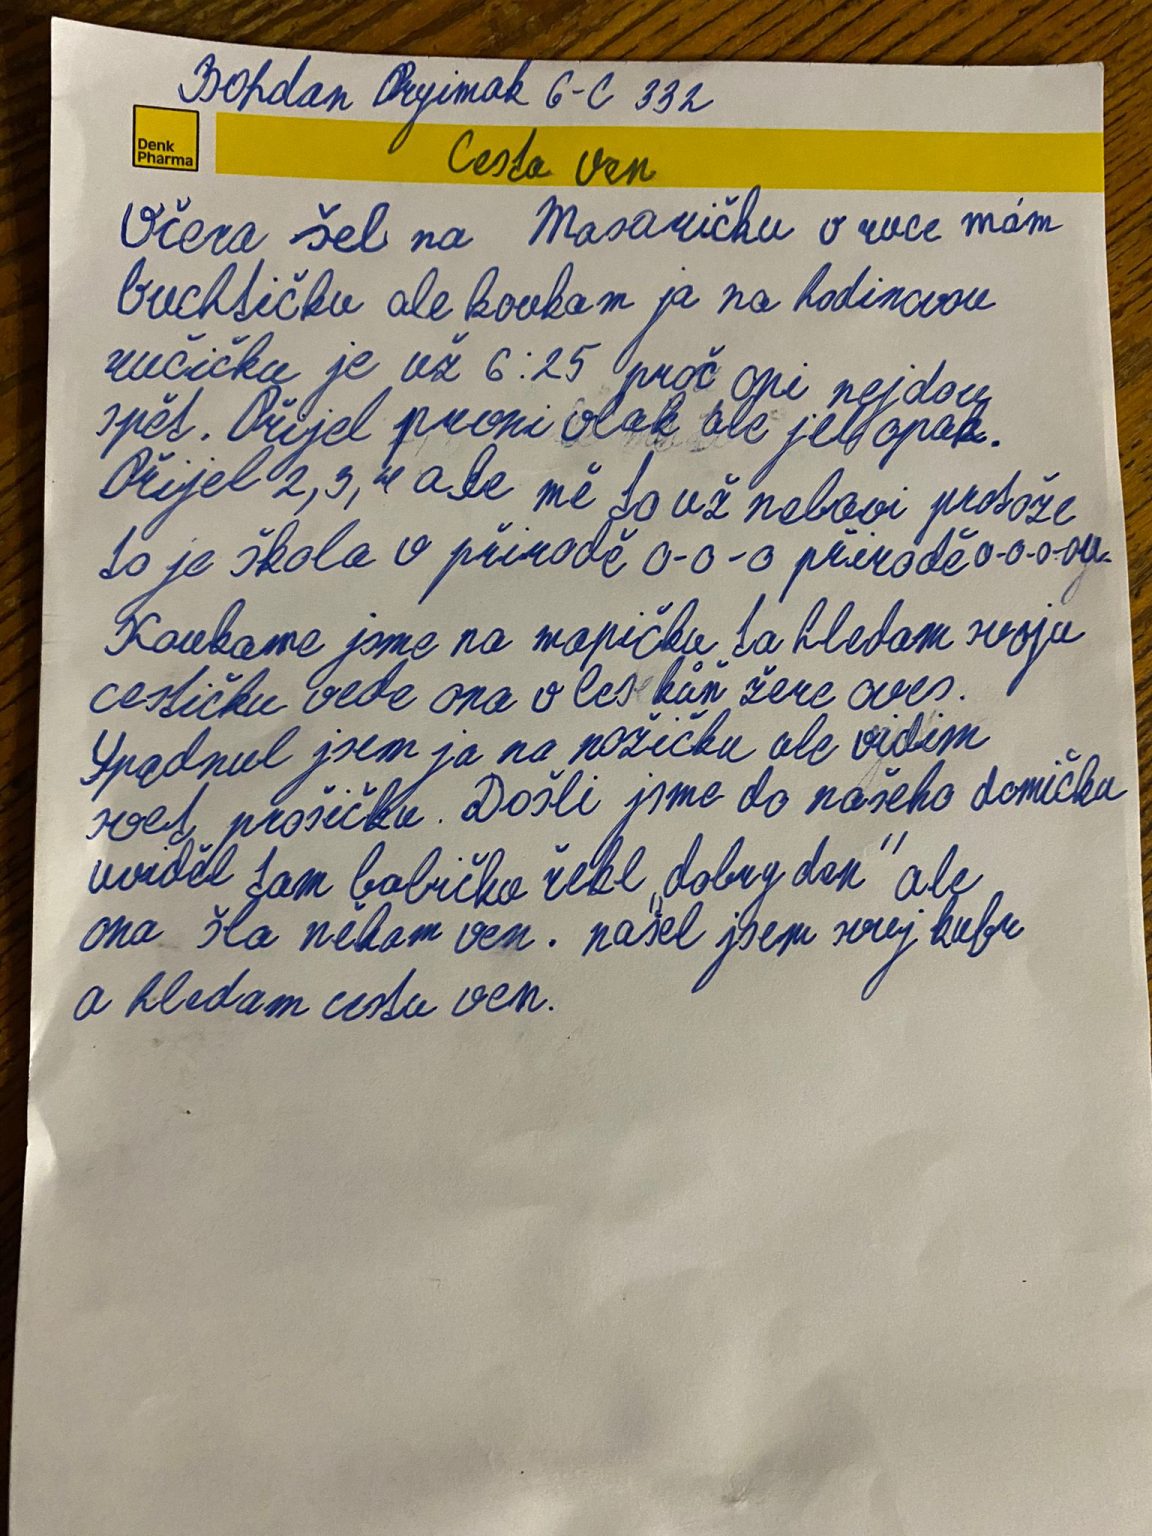 Bohdan Pryimak 6-C 332
Denk
Pharma
Cesta ven
Včera šel na Masaričku v ruce mám
buchtičku ale koukam ja na hodinovou
ručičku je už 6:25 proč oni nejdou
spět. Přijel prvni vlak ale jel opak.
Přijel 2, 3, 4 ale mě to už nebavi protože
to je škola v přirodě o-o-o přirodě o-o-o-ou
Koukame jsme na mapičku ta hledam svoju
cestičku vede ona v les kůň žere oves.
Upadnul jsem ja na nožičku ale vidim
svet prošičku. Došli jsme do našeho domičku
uviděl tam babičku řekl „dobry den" ale
ona šla někam ven. našel jsem svej kufr
a hledam cestu ven.